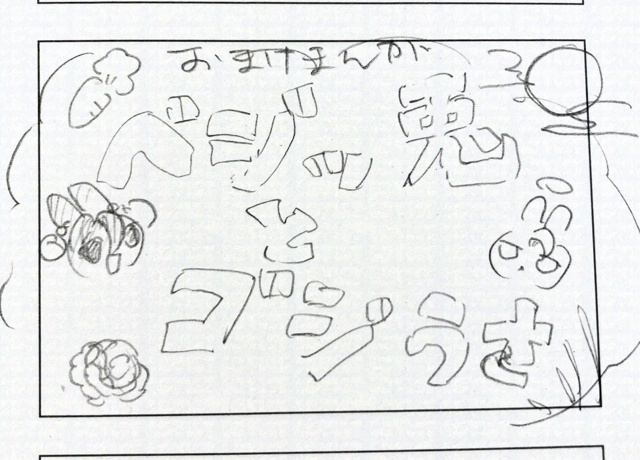 おまけまんが
ベジッ兎
と
ゴジうさ